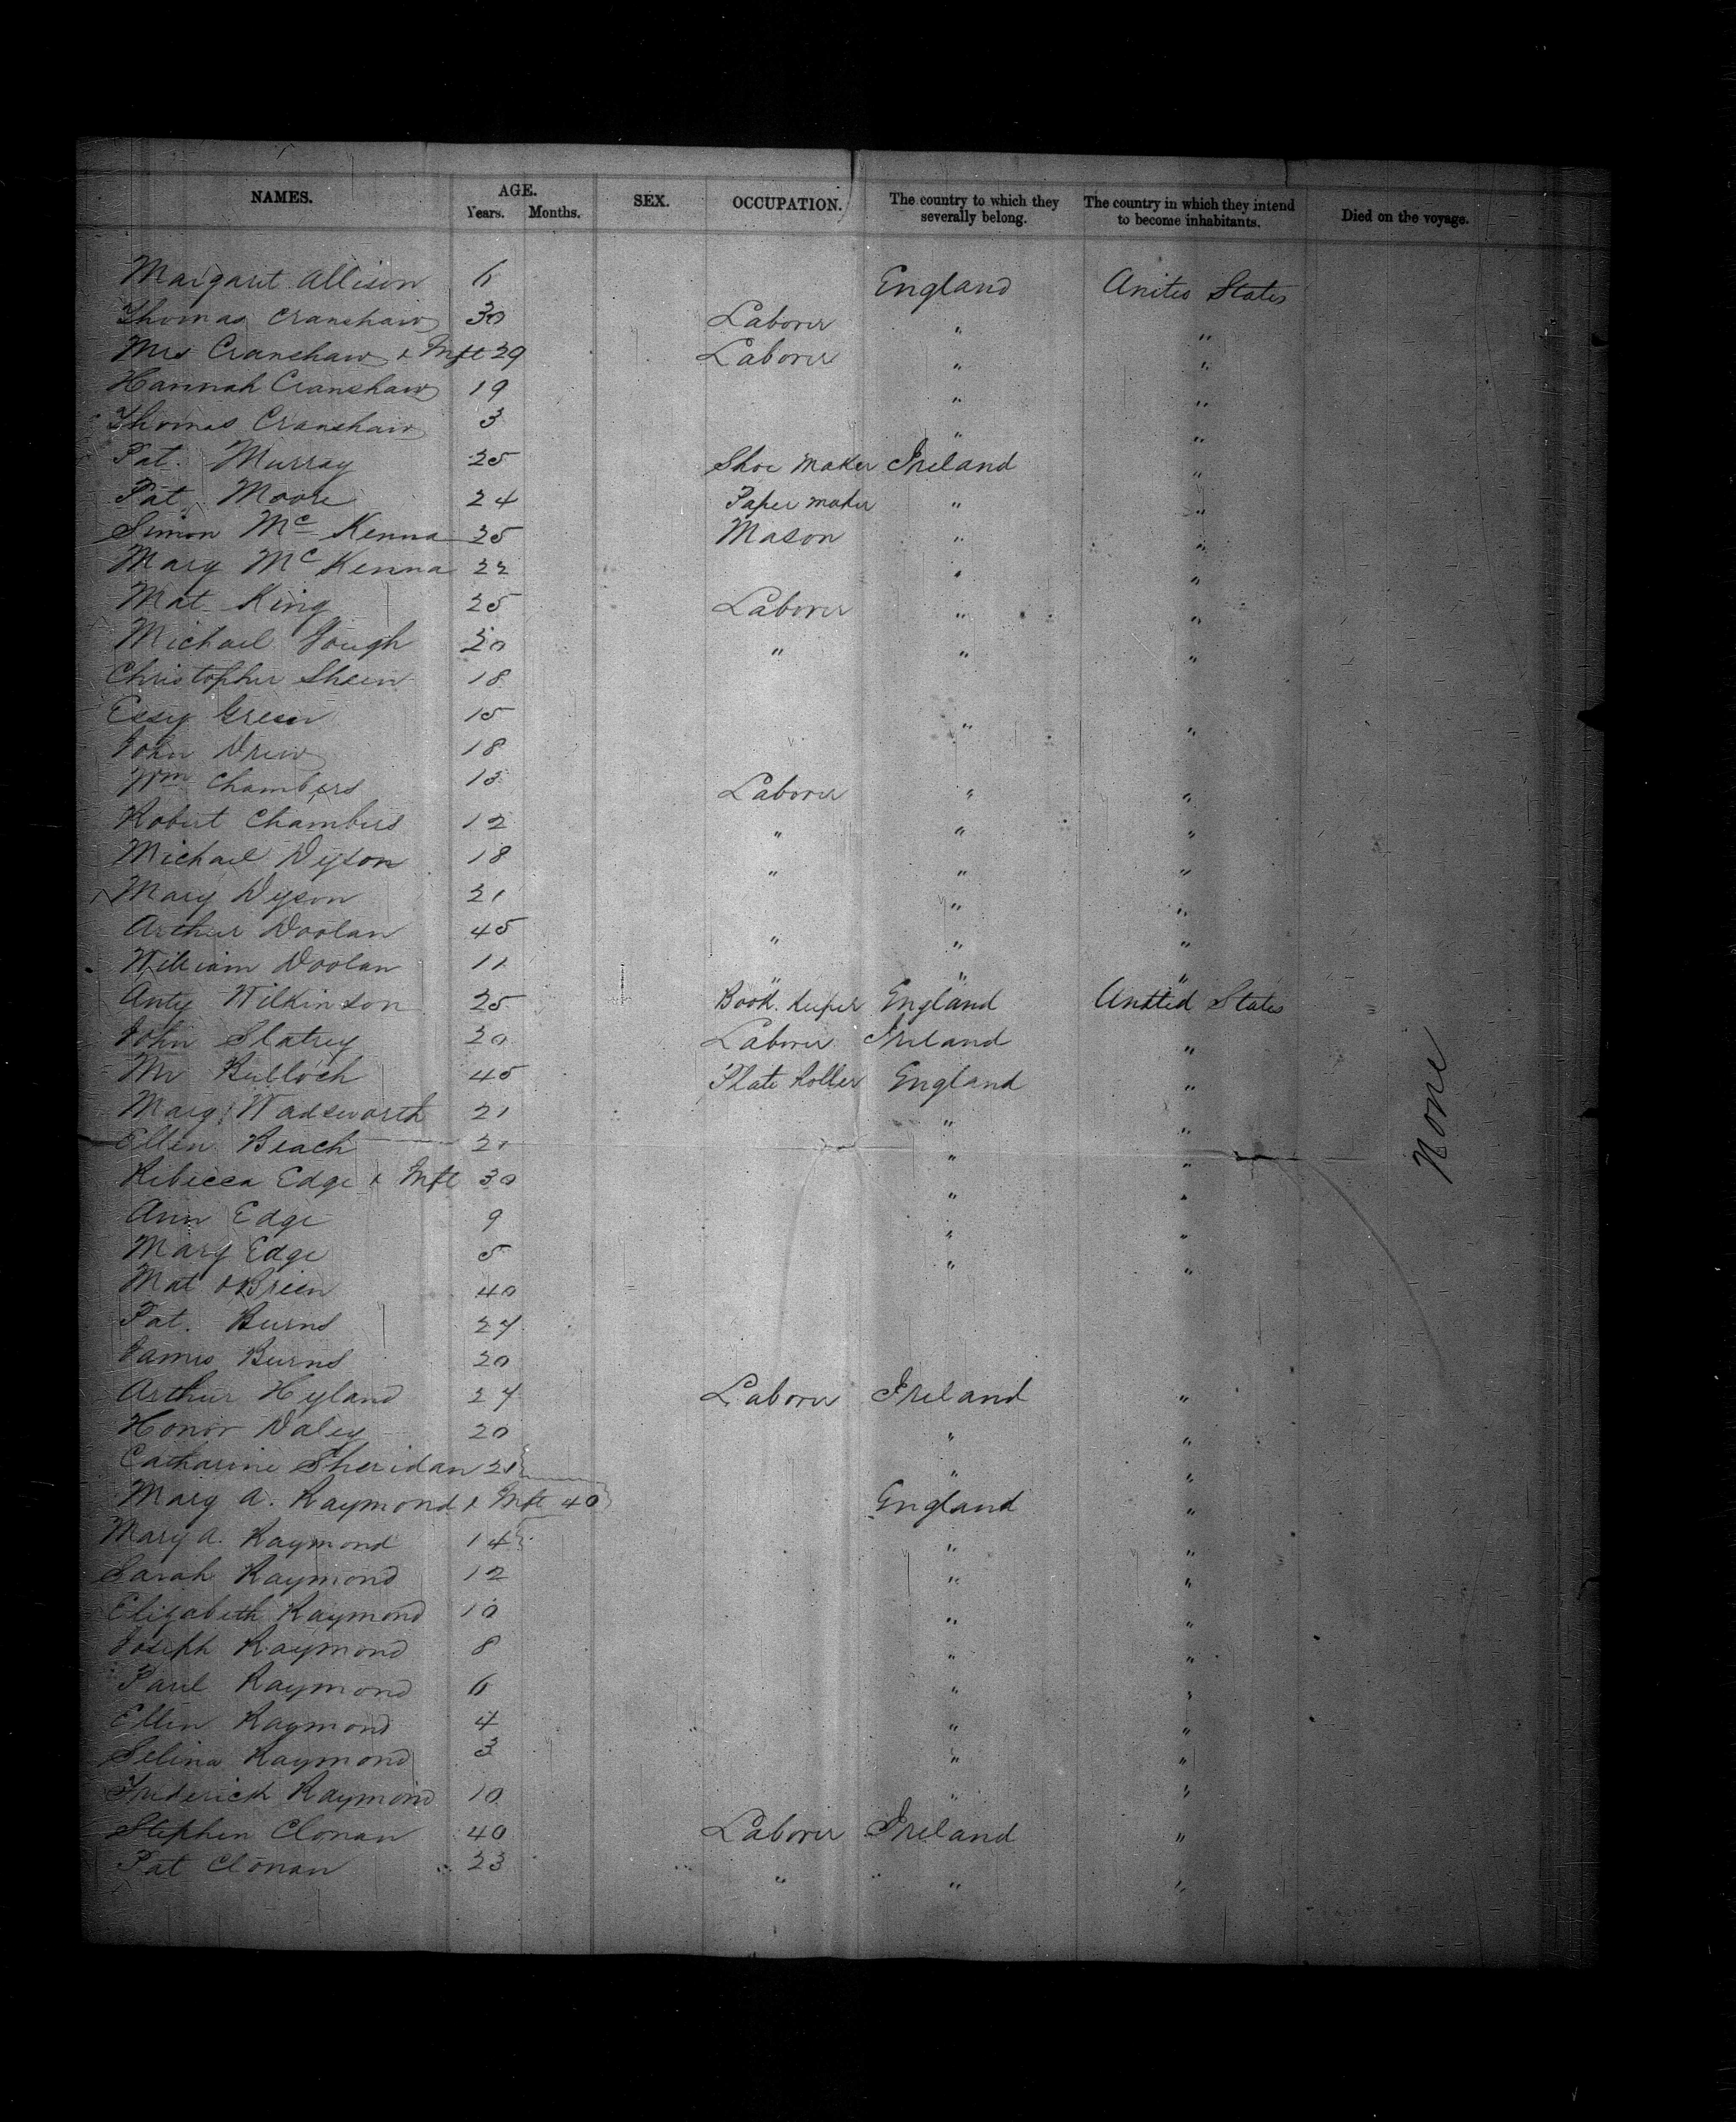 NAMES. AGE. Years. Months. SEX. OCCUPATION. The country to which they severally belong. The country in which they intend to become inhabitants. Died on the voyage.
Margaret Allison 6 England United States
Thomas Cranshaw 30 Laborer " "
Mrs Cranshaw & Inft 29 Laborer " "
Hannah Cranshaw 19 " "
Thomas Cranshaw 3 " "
Pat. Murray 25 Shoe Maker Ireland "
Pat. Moore 24 Paper maker " "
Simon McKenna 25 Mason " "
Mary McKenna 22 " "
Mat King 25 Laborer " "
Michael Gough 20 " " "
Christopher Sheen 18
Essy Green 15 " "
John Drew 18
Wm Chambers 13 Laborer " "
Robert Chambers 12 " " "
Michael Dyson 18 " " "
Mary Dyson 21 " "
Arthur Doolan 45 " " "
William Doolan 11 " " "
Anty Wilkinson 25 Book Keeper England United States
John Slatrey 20 Laborer Ireland "
Mr Bulloch 45 Plate Roller England "
Mary Wadsworth 21 " "
Ellen Beach 21 " "
Rebecca Edge & Inft 30 " "
Ann Edge 9 " "
Mary Edge 5 " "
Mat OBrien 40
Pat. Burns 24
James Burns 20
Arthur Hyland 24 Laborer Ireland "
Honor Daley 20 " "
Catharine Sheridan 21 " "
Mary A. Raymond & Inft 40 England "
Mary A. Raymond 14 " "
Sarah Raymond 12 " "
Elizabeth Raymond 10 " "
Joseph Raymond 8 " "
Paul Raymond 6 " "
Ellen Raymond 4 " "
Selina Raymond 3 " "
Frederick Raymond 10 " "
Stephen Clonan 40 Laborer Ireland "
Pat Clonan 23 " " "
None